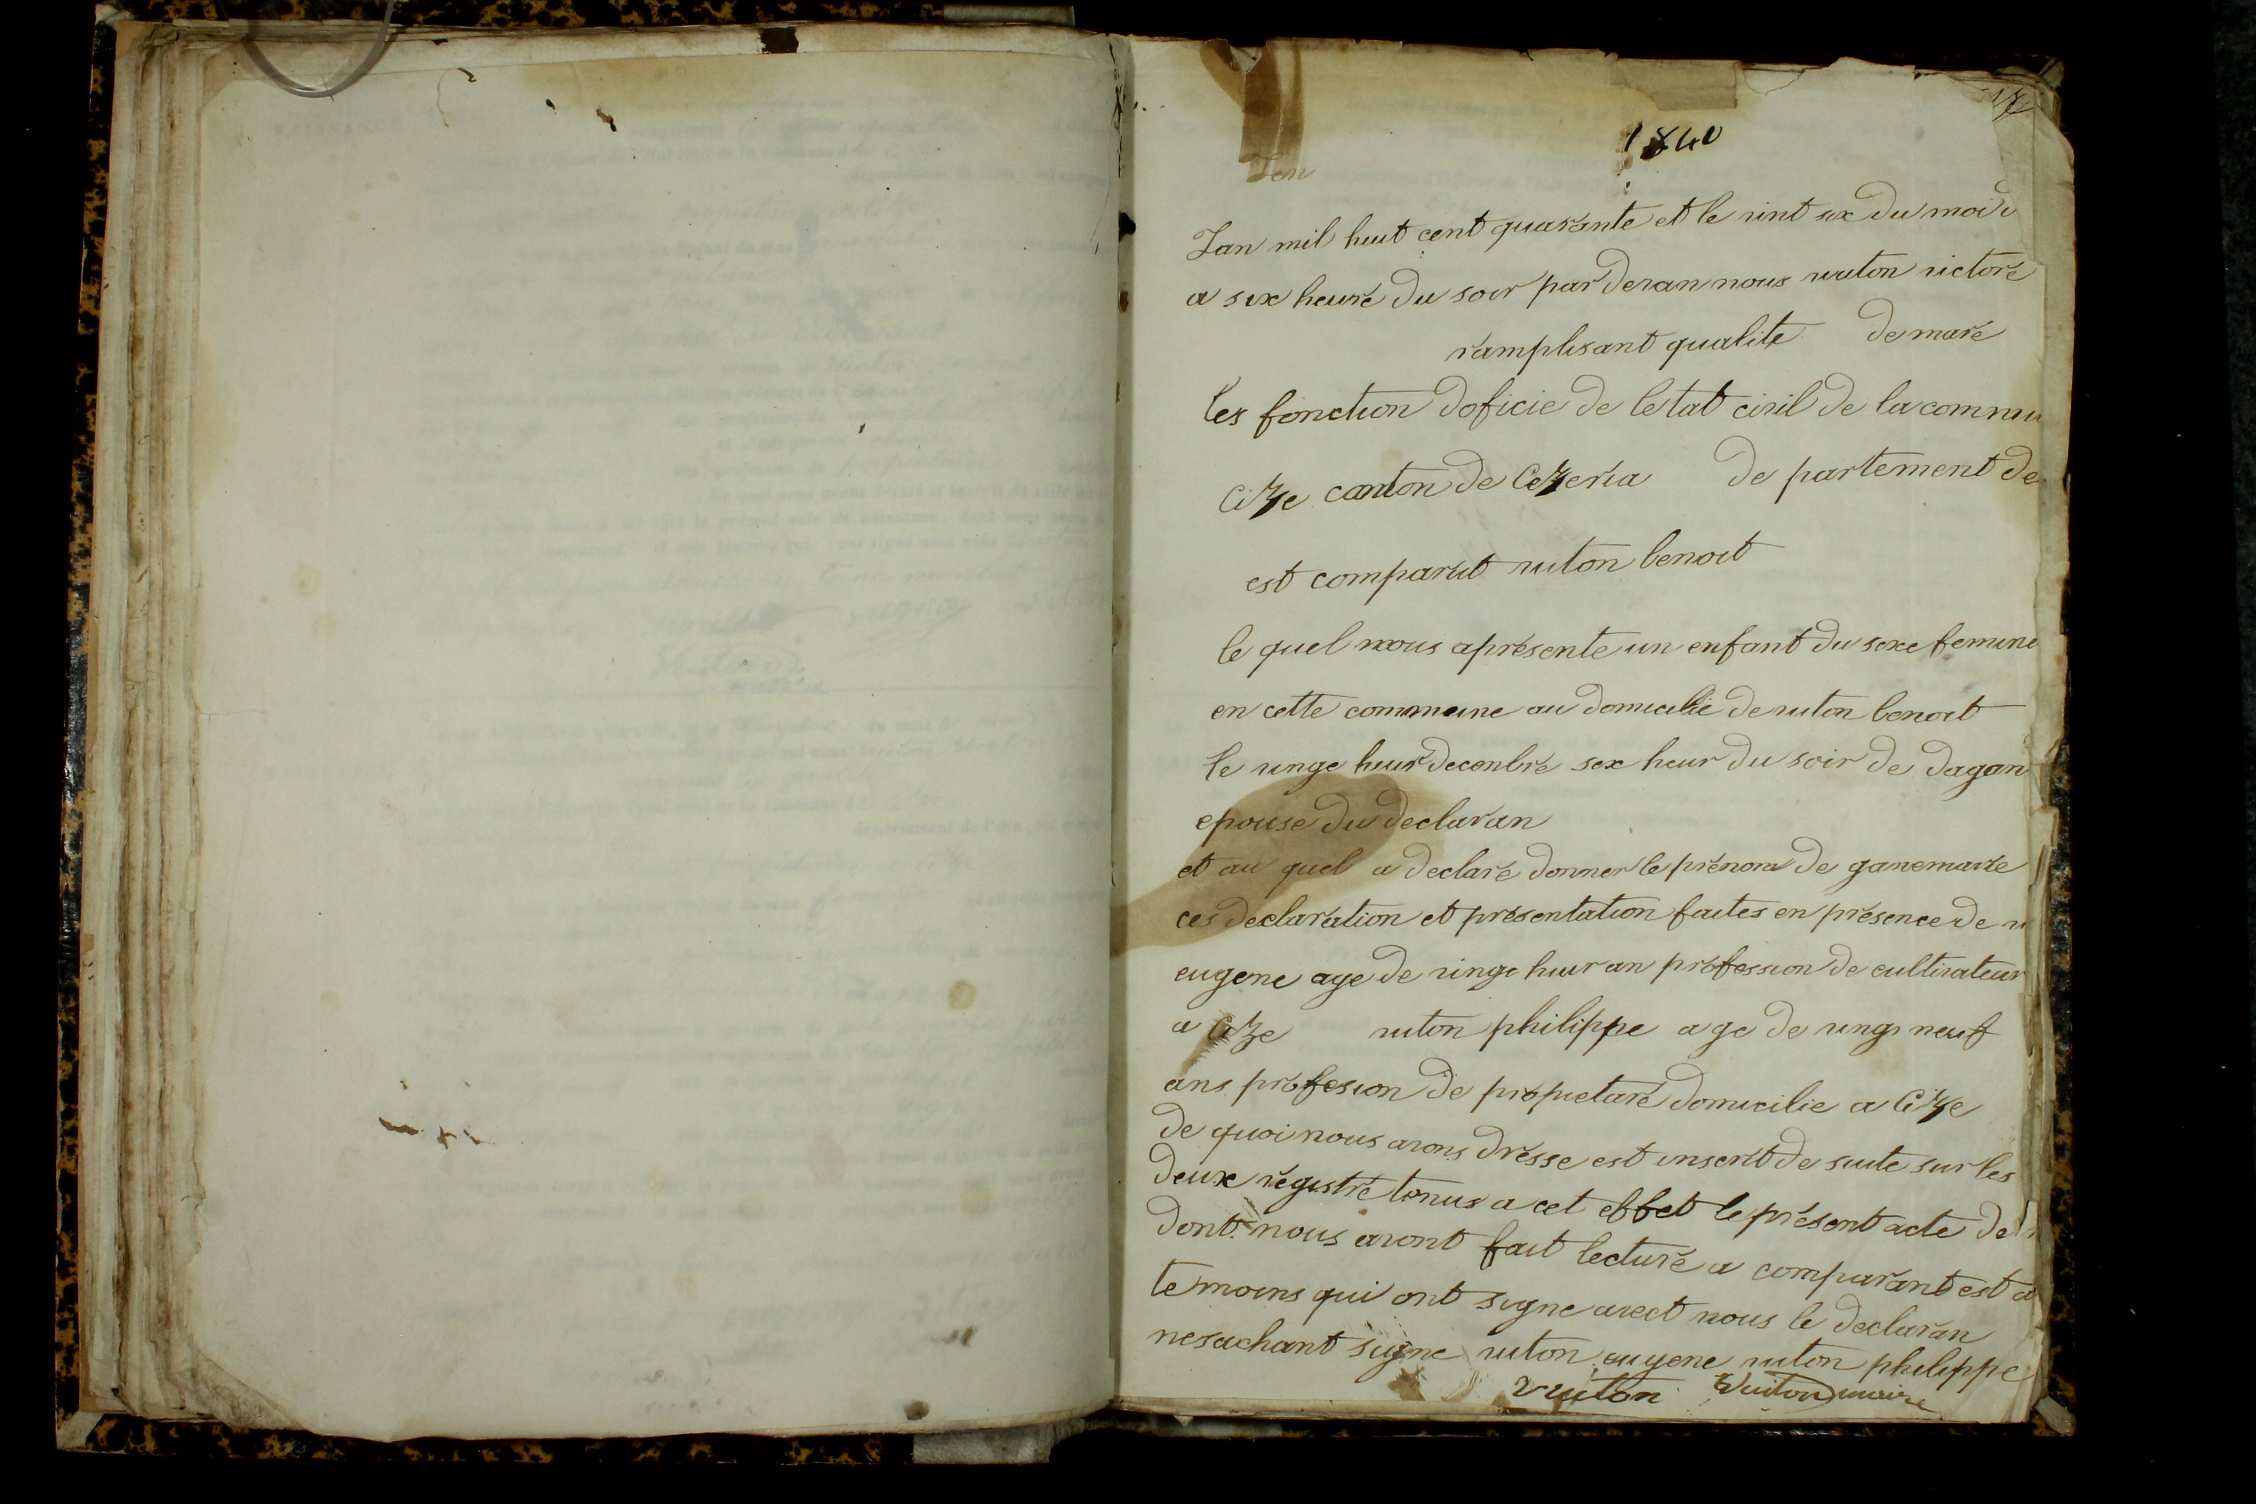 1840
Lan
Lan mil huit cent quarante et le vint six du moi d
a six heure du soir par devan nous vuiton victore
ramplisant qualite de mare
les fonction doficie de letat civil de la commu
Cize canton de Cezeria de partement de
est comparut viuton benoit
le quel nous apresente un enfant du sexe femine
en cette commune au domicilie de viuton benoit
le vinge heur decenbre six heur du soir de dagan
epouse du declaran
et au quel a declare donner le prenom de ganemarie
ces declaration et presentation faites en presence de
eugene age de vinge huir an profession de cultivateur
a Cize viuton philippe age de vinge neuf
ans profesion de propietare domicilie a Cize
de quoi nous avons dresse est inscrit de suite sur les
deux registre tenus a cet effet le present acte de
dont nous avont fait lecture a comparant est a
temoins qui ont signe avect nous le declaran
nesachant signe viuton eugene viuton philippe
vuiton Vuiton maire